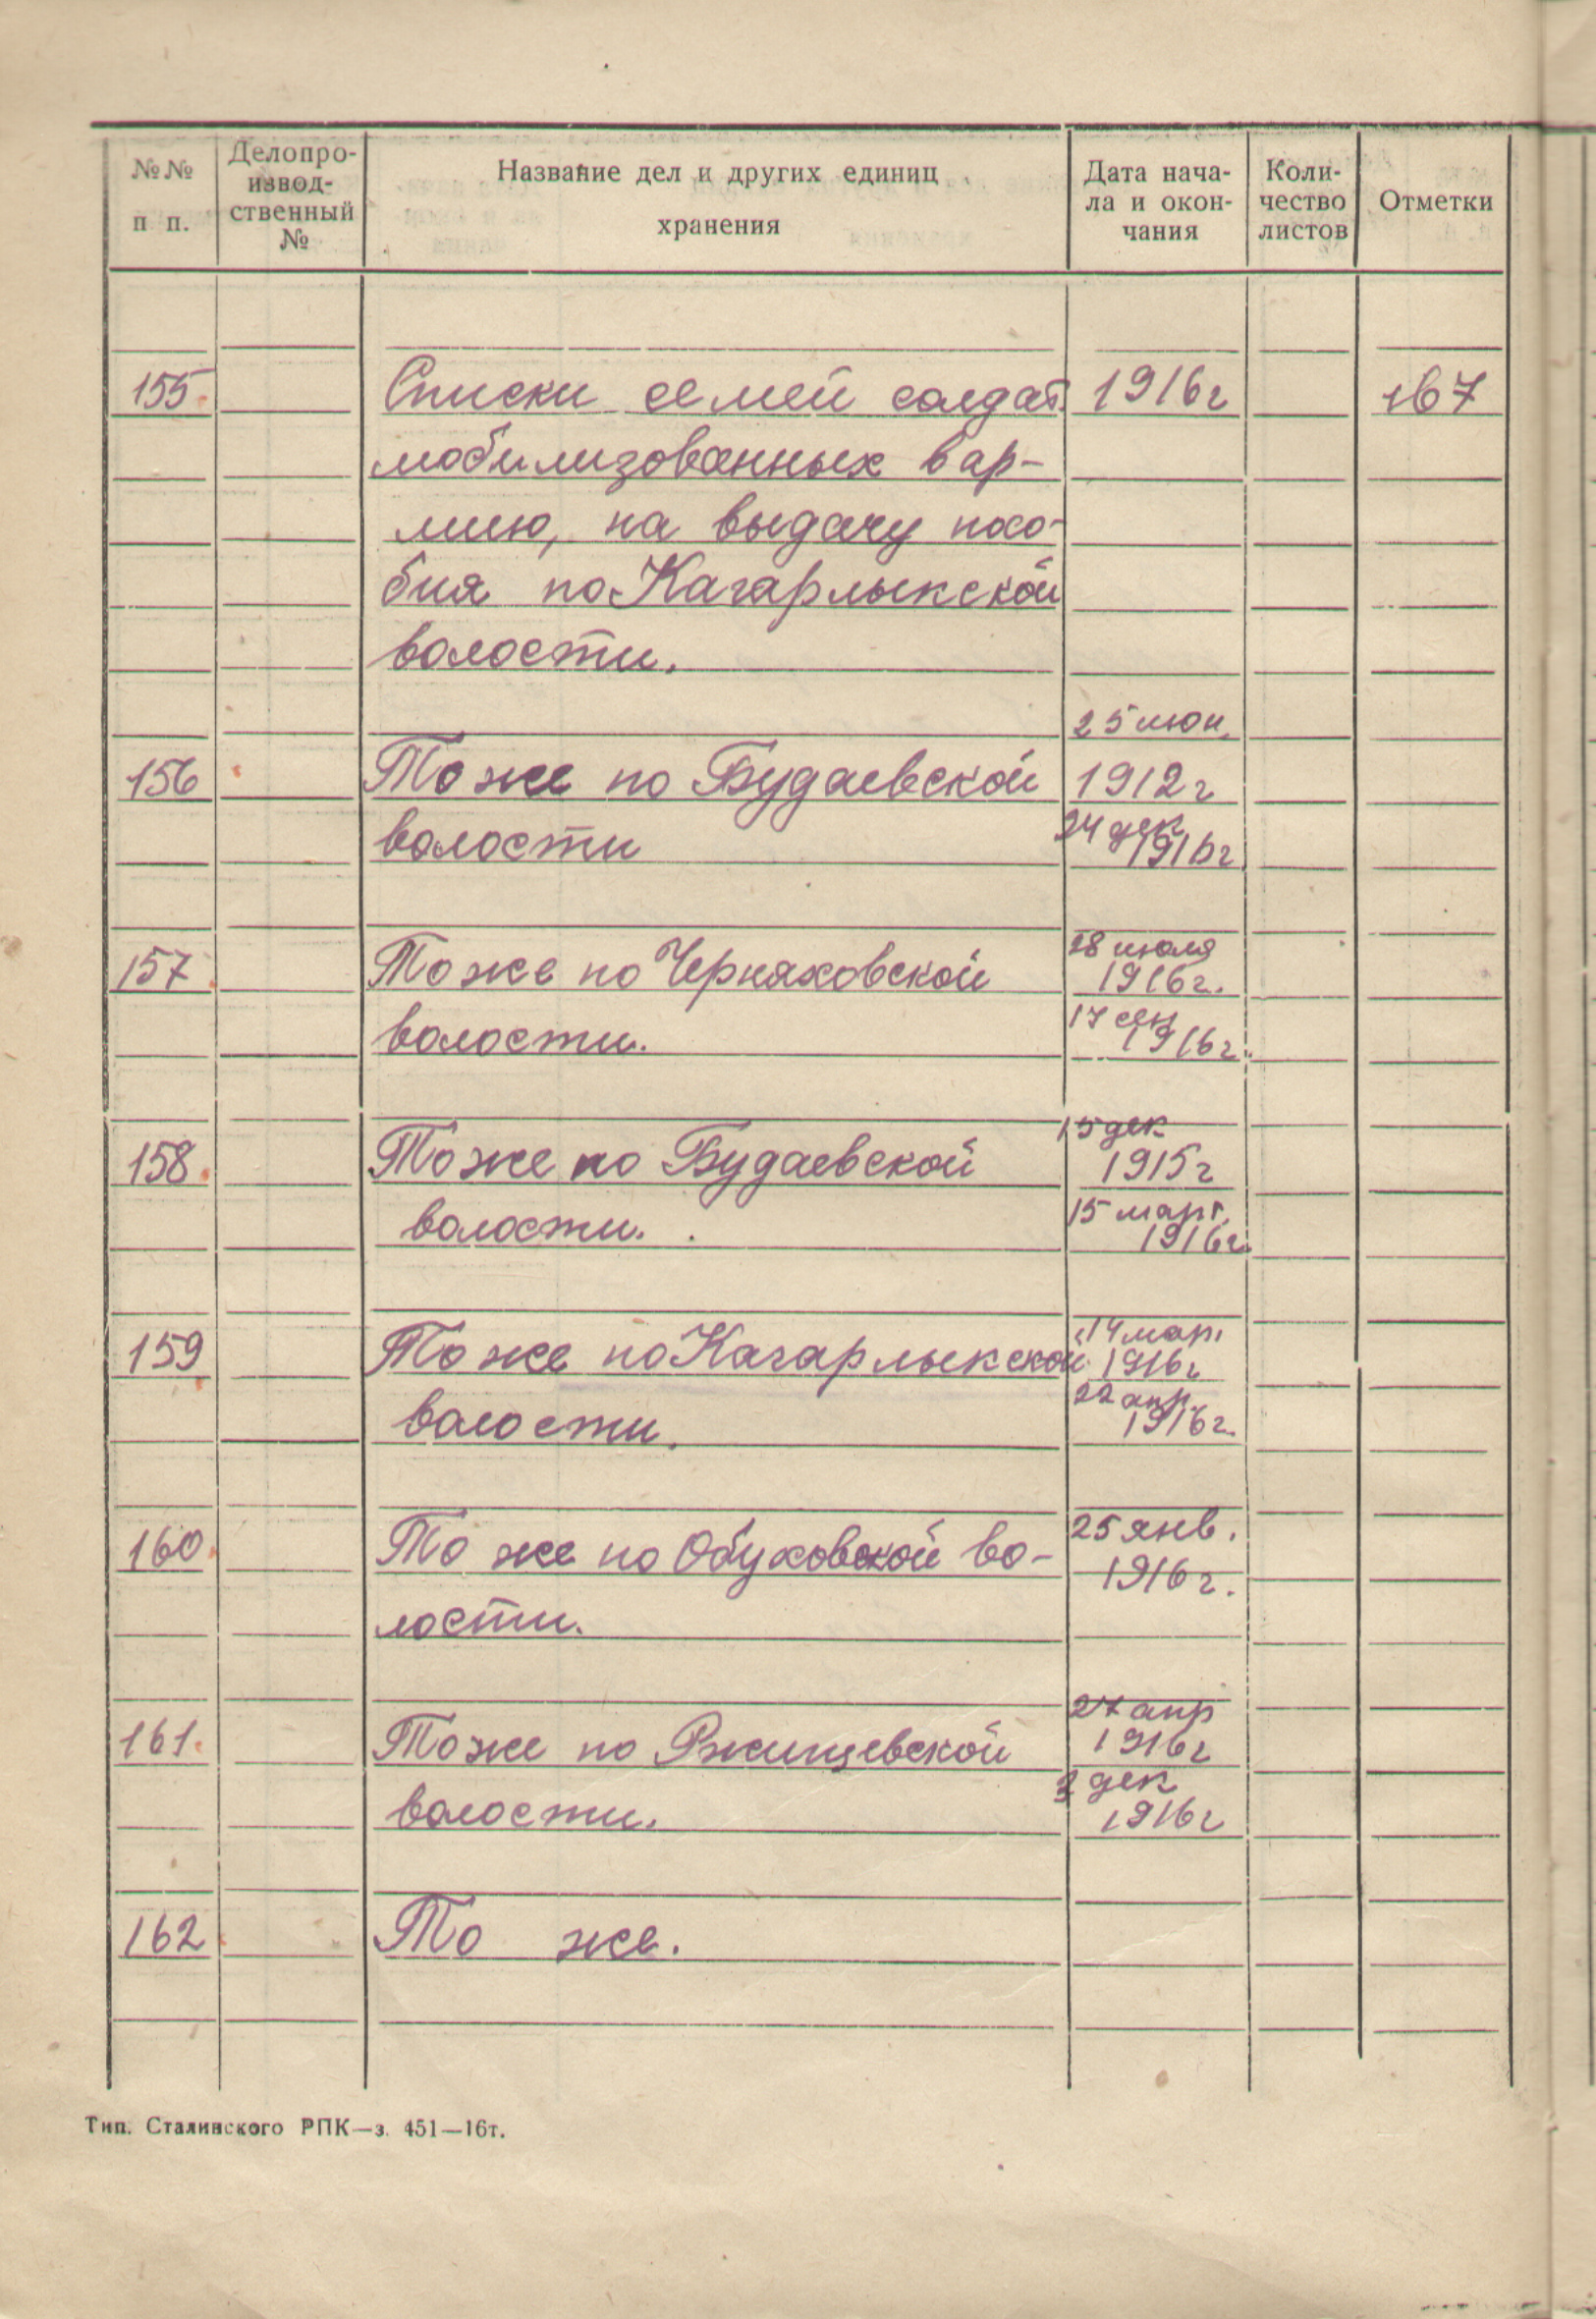 №№ п п.
Делопро-
извод-
ственный
№
Название дел и других единиц
хранения
Дата нача-
ла и окон-
чания
Коли-
чество
листов
Отметки
155. Списки семей солдат 1916г 167
мобилизованных в ар-
мию, на выдачу посо-
бия по Кагарлыкской
волости.
25 июн.
156 То же по Будаевской 1912г
24 дек
волости 1916г
28 июля
157 То же по Черняховской 1916г.
17 сен
волости. 1916г.
15 дек
158. То же по Будаевской 1915г
15 март.
волости. 1916г.
14 мар.
159 То же по Кагарлыкской 1916г
22 апр.
волости. 1916г.
25 янв.
160. То же по Обуховской во- 1916г.
лости.
27 апр
161. То же по Ржищевской 1916г
3 дек
волости. 1916г
162 То же.
Тип. Сталинского РПК—з. 451—16т.